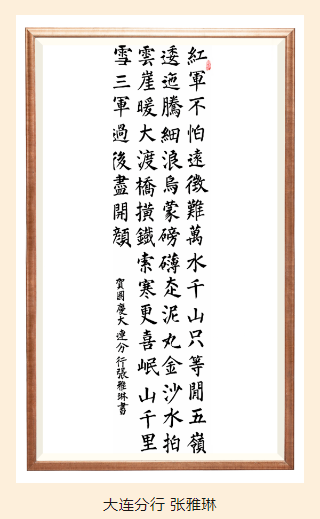 紅軍不怕遠徵難萬水千山只等閒五嶺
逶迤騰細浪烏蒙磅礴走泥丸金沙水拍
雲崖暖大渡橋橫鐵索寒更喜岷山千里
雪三軍過後盡開顏
賀國慶大連分行張雅琳書
大连分行 张雅琳